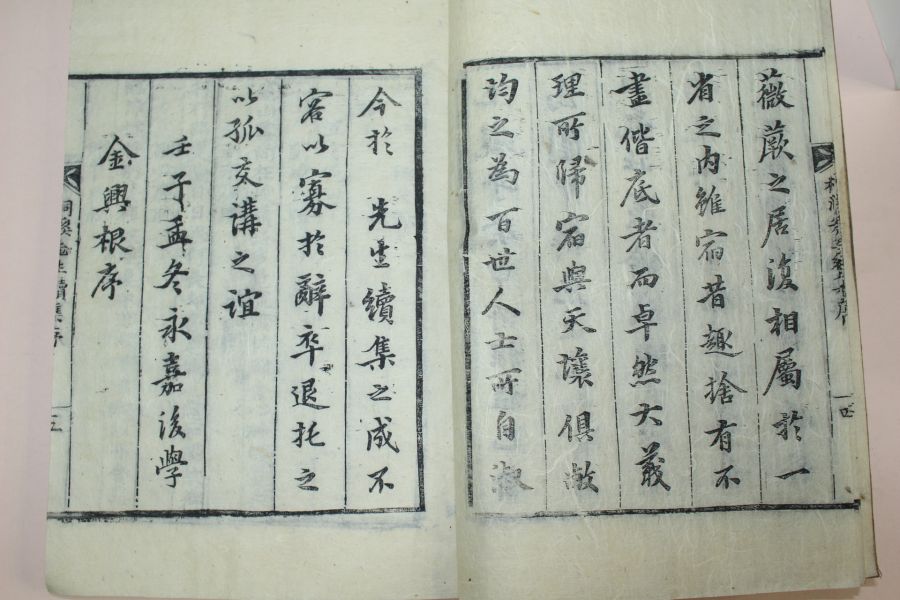 薇蕨之居復相屬於一
省之内雖宿昔趣捨有不
盡偕底者而卓然大義
理所歸宿與天壤俱敝
均之為百世人士所自淑
今於 先生續集之成不
容以寡於辭卒退托之
以孤交講之誼
壬子孟冬永嘉後學
金興根序
桐溪先生續集序